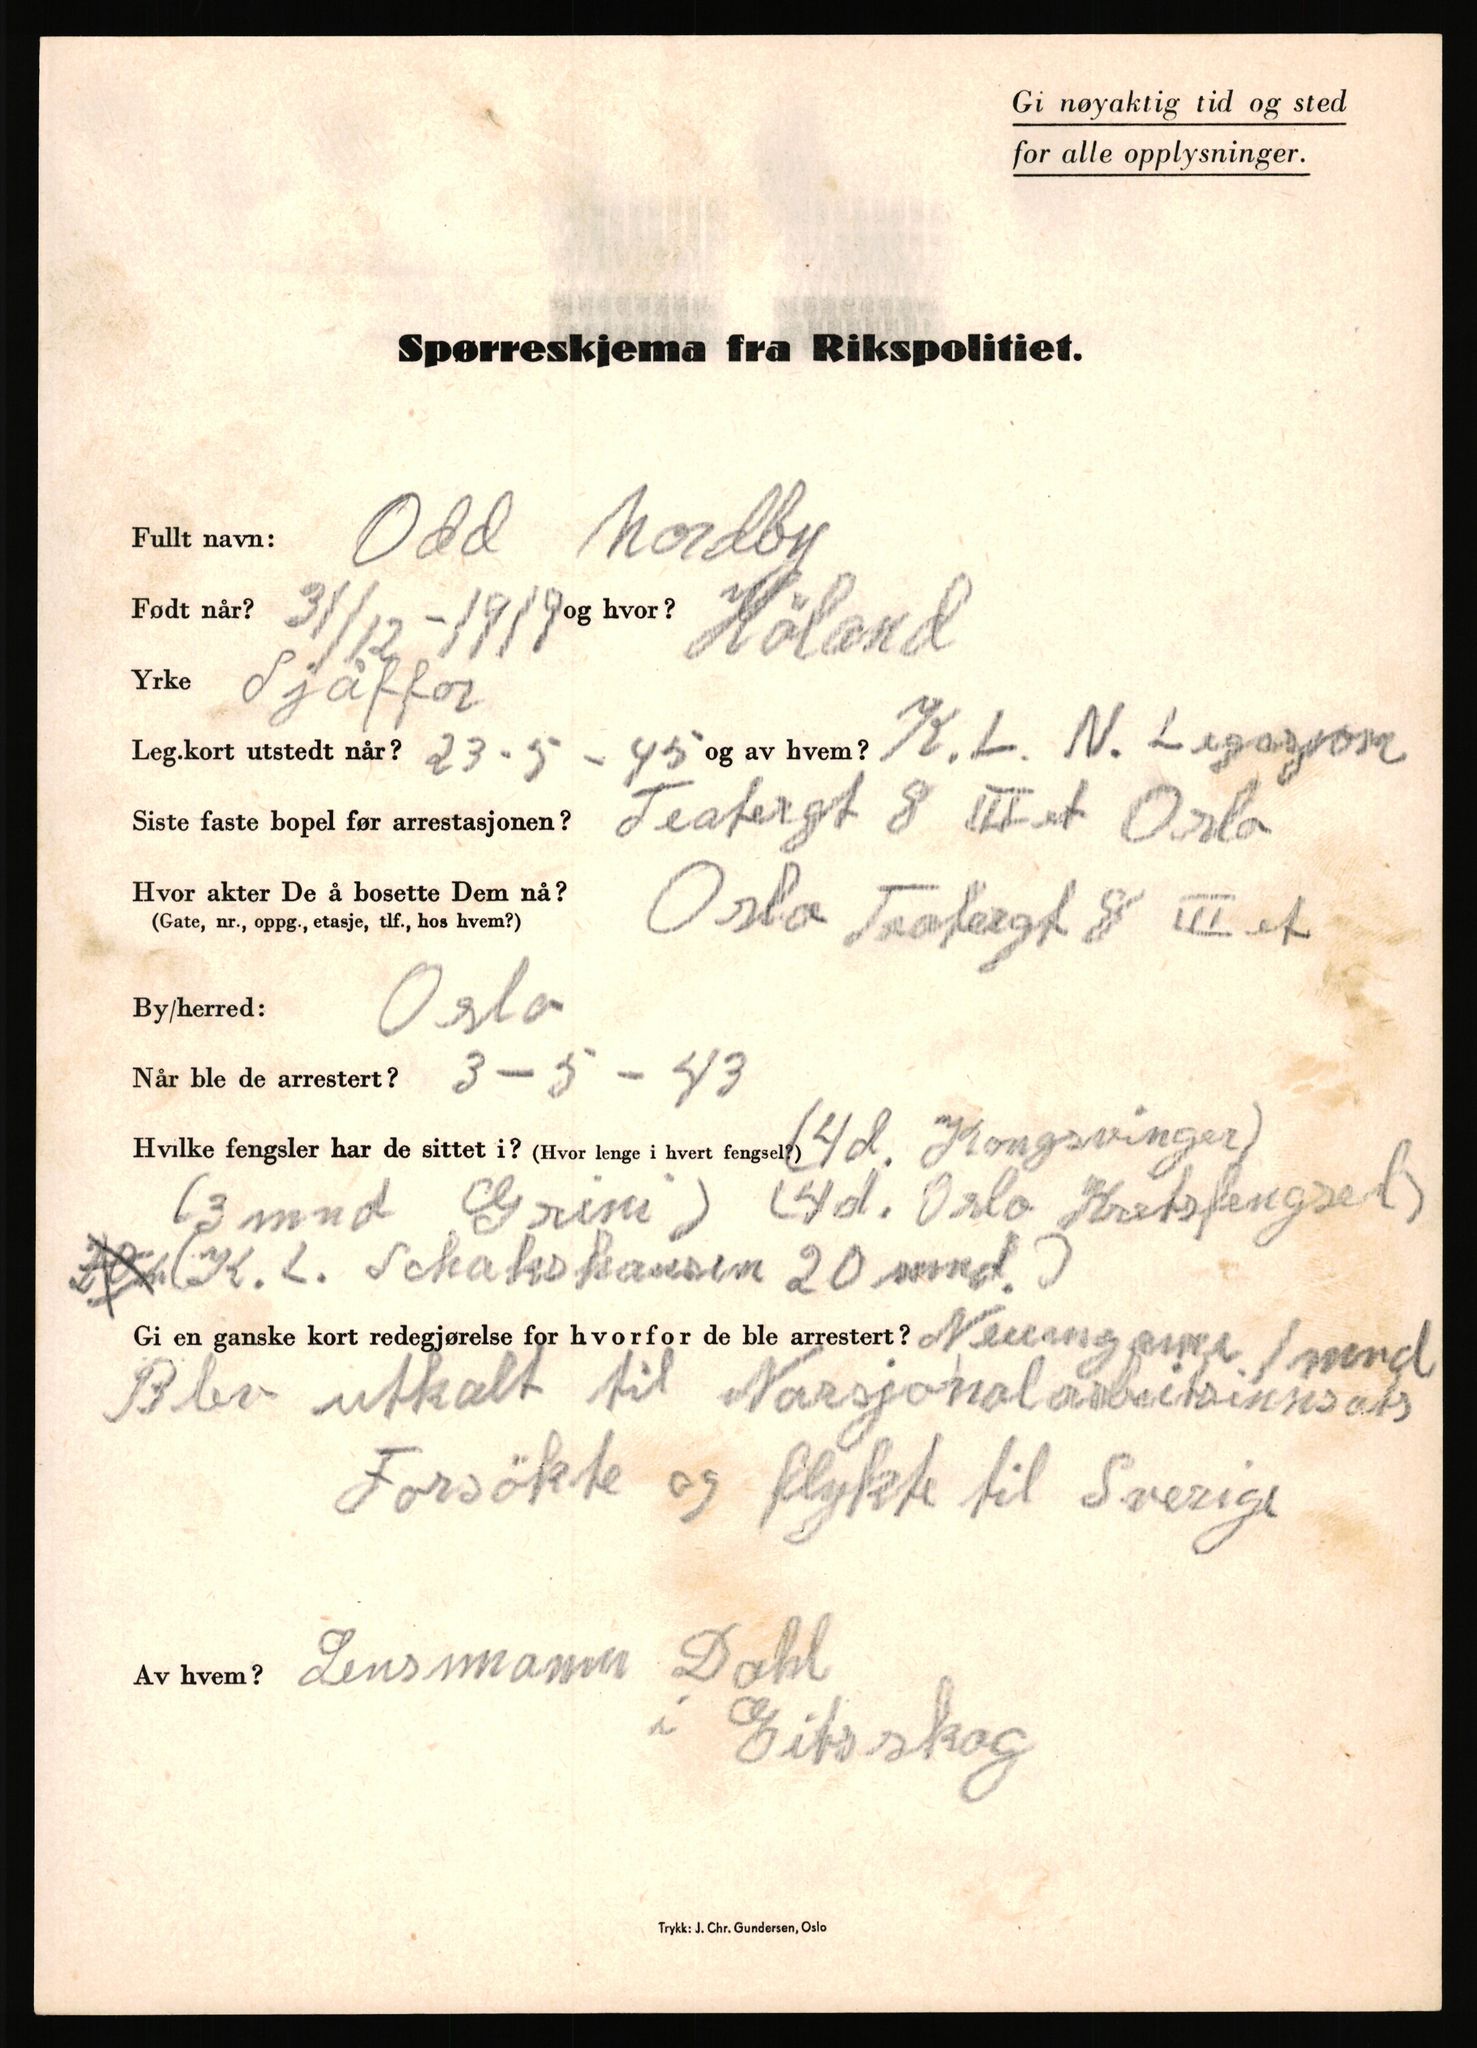 Gi nøyaktig tid og sted
for alle opplysninger.
Spørreskjema fra Rikspolitiet.
Fullt navn: Odd Nordby
Født når? 31/12-1919 og hvor? Höland
Yrke Sjåffor
Leg.kort utstedt når? 23-5-45 og av hvem? K. L. N. Legasjon
Siste faste bopel før arrestasjonen? Teatergt 8 III et Oslo
Hvor akter De å bosette Dem nå? Oslo Teatergt 8 III et
(Gate, nr., oppg., etasje, tlf., hos hvem?)
By/herred: Oslo
Når ble de arrestert? 3-5-43
Hvilke fengsler har de sittet i? (Hvor lenge i hvert fengsel?) (4d. Kongsvinger)
(3 mnd Grini) (4d. Oslo Kretsfengsel)
(K. L. Schakshausen 20 mnd.)
Gi en ganske kort redegjørelse for hvorfor de ble arrestert? Neuengame 1 mnd
Blev utkalt til Narsjonalarbeitsinnsats
Forsökte og flykte til Sverige
Av hvem? Lensmann Dahl
i Eitsskog
Trykk: J. Chr. Gundersen, Oslo